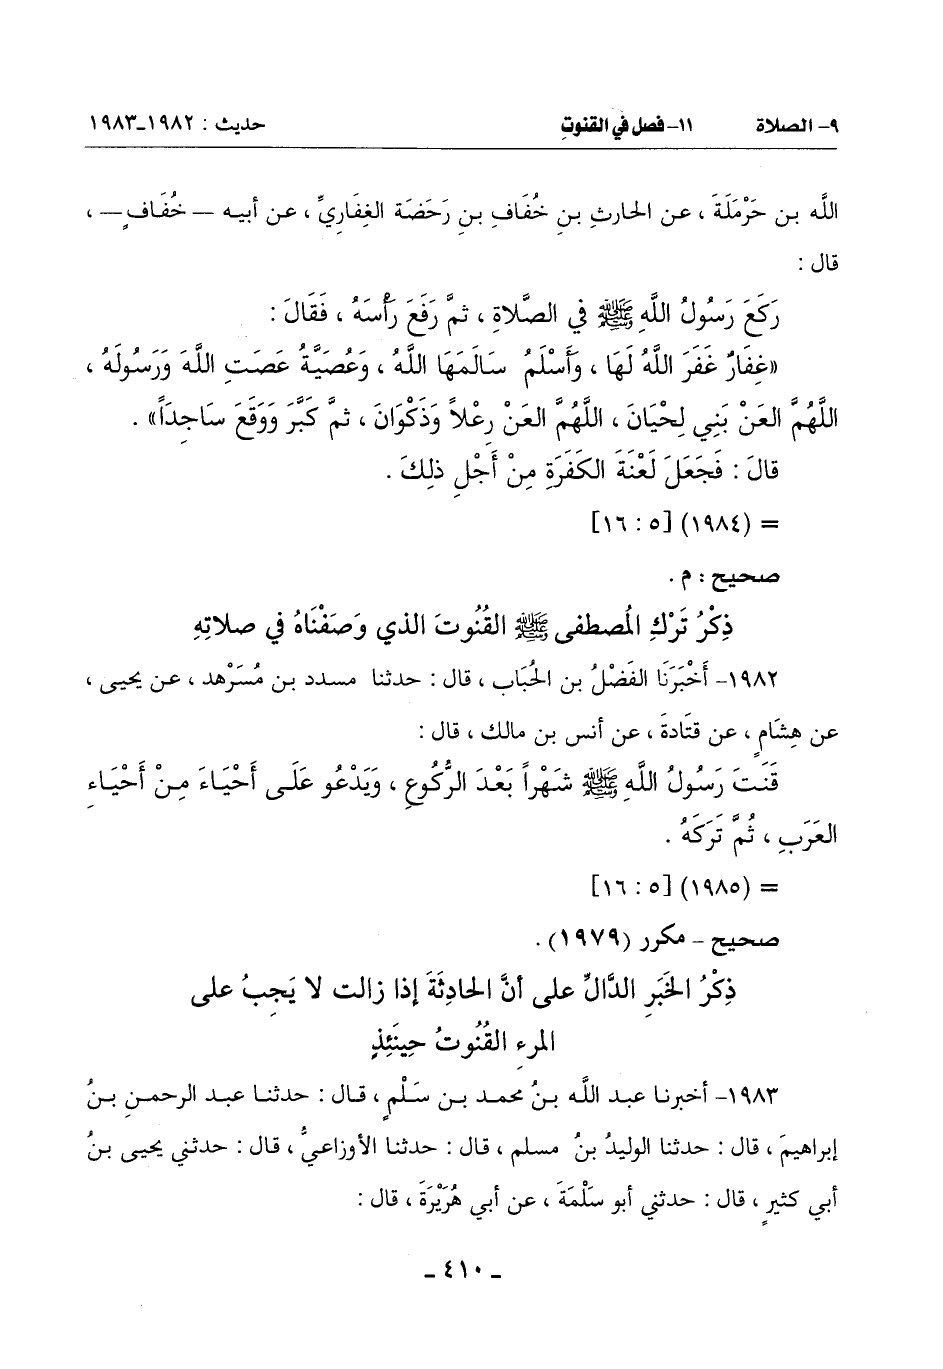 ٩- الصلاة ١١- فصل في القنوتِ حديث : ١٩٨٢-١٩٨٣
اللَّه بن حَرْمَلَةَ ، عـن الحارثِ بـنِ خُفَافِ بـنِ رَحَضَة الغِفَاريِّ ، عـن أبيـه – خُفَـافٍ – ،
قال :
رَكَعَ رَسُولُ اللَّهِ ﷺ في الصَّلاةِ ، ثمَّ رَفَعَ رَأْسَهُ ، فَقَالَ :
«غِفَارٌ غَفَرَ اللَّهُ لَهَا ، وَأَسْلَمُ سَالَمَهَا اللَّهُ ، وَعُصَيَّةُ عَصَتِ اللَّهَ وَرَسُولَهُ ،
اللَّهُمَّ العَنْ بَنِي لِحْيَانَ ، اللَّهُمَّ العَنْ رِعْلاً وَذَكْوَانَ ، ثمَّ كَبَّرَ وَوَقَعَ سَاجِدَاً» .
قالَ : فَجَعَلَ لَعْنَةَ الكَفَرَةِ مِنْ أَجْلِ ذلِكَ .
= (١٩٨٤) [٥ : ١٦]
صحيح : م .
ذِكْرُ تَرْكِ المُصطفى ﷺ القُنُوتَ الذي وَصَفْنَاهُ في صلاتِهِ
١٩٨٢- أَخْبَرَنَا الفَضْلُ بن الحُبَاب ، قال : حدثنا مسدد بن مُسَرْهد ، عن يحيى ،
عن هِشَامٍ ، عن قتَادةَ ، عن أنس بن مالك ، قال :
قَنَتَ رَسُولُ اللَّهِ ﷺ شَهْراً بَعْدَ الرُّكُوعِ ، وَيَدْعُو عَلَـى أَحْيَاءَ مِـنْ أَحْيَاءِ
العَرَبِ ، ثُمَّ تَرَكَهُ .
= (١٩٨٥) [٥ : ١٦]
صحيح - مكرر (١٩٧٩) .
ذِكْرُ الخَبَرِ الدَّالِّ على أنَّ الحادِثَةَ إذا زالت لا يَجِبُ على
المرءِ القُنُوتُ حِينَئِذٍ
١٩٨٣- أخبرنـا عبـد اللَّـه بـنُ محمـد بـن سَـلْمٍ ، قـال : حدثنـا عبـد الرحمـنِ بـنُ
إبراهيمَ ، قال : حدثنا الوليدُ بنُ مسلم ، قال : حدثنا الأوزاعيُّ ، قال : حدثني يحيى بنُ
أبي كثيرٍ ، قال : حدثني أبو سَلْمَةَ ، عن أبي هُرَيْرَةَ ، قال :
- ٤١٠ -